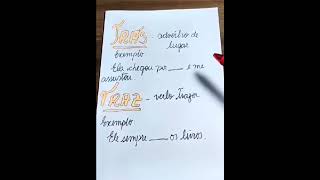 TRÁS - advérbio de
lugar
Exemplo
Ela chegou por ___ e me
assustou.
TRAZ - verbo trazer
Exemplo
Ele sempre ___ os livros.